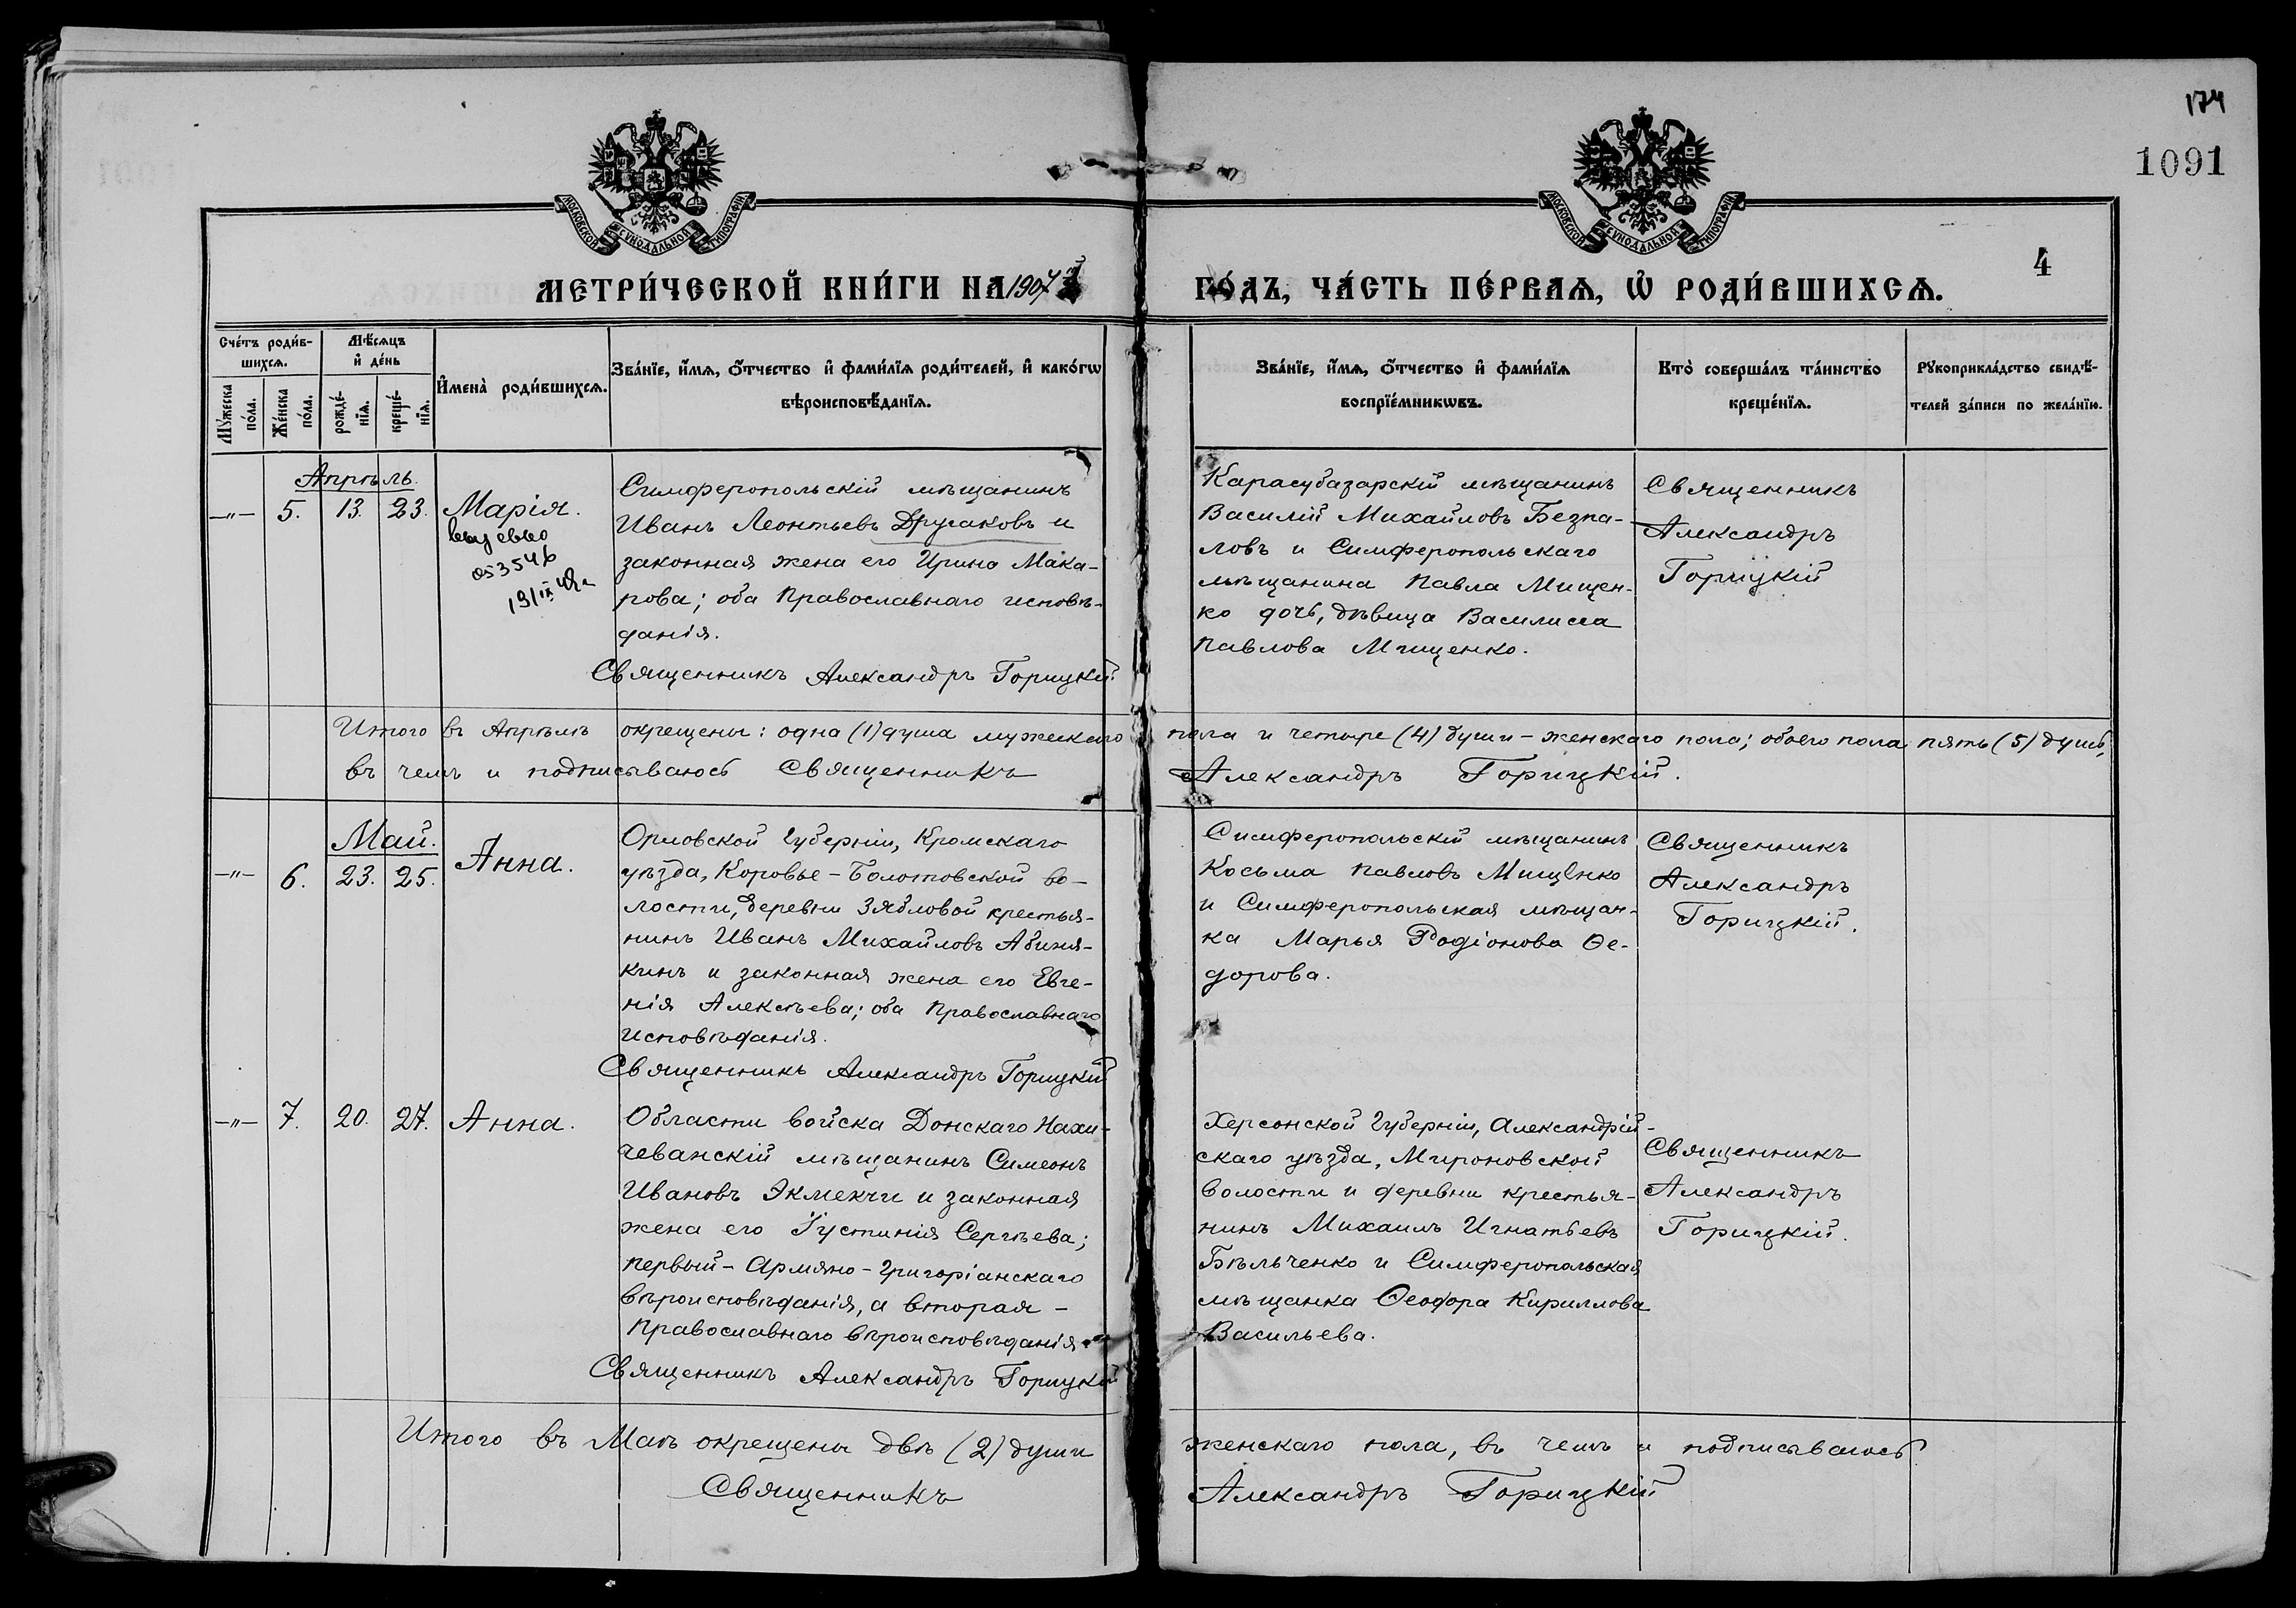 174
1091
4
МОСКОВСКОЙ СѴНОДАЛЬНОЙ ТИПОГРАФІИ
МОСКОВСКОЙ СѴНОДАЛЬНОЙ ТИПОГРАФІИ
МЕТРИ́ЧЕСКОЙ КНИ́ГИ НА 1907 й
ГО́ДЪ, ЧА́СТЬ ПЕ́РВАѦ, Ѽ РОДИ́ВШИХСѦ.
Сче́тъ роди́в-
шихсѧ.
Мꙋжеска по́ла.
Же́нска по́ла.
Мѣ́сѧцъ
и҆ де́нь
рожде́-
нїѧ.
креще́-
нїѧ.
И҆мена̀ роди́вшихсѧ.
Зва́нїе, и҆́мѧ, ѻ҆́тчество и҆ фами́лїѧ роди́телей, и҆ како́гѡ
вѣроисповѣ́данїѧ.
Зва́нїе, и҆́мѧ, ѻ҆́тчество и҆ фами́лїѧ
воспрїе́мникѡвъ.
Кто̀ соверша́лъ та́инство
креще́нїѧ.
Рꙋкоприкла́дство свидѣ́-
телей за́писи по жела́нїю.
Апрѣль.
—„— 5. 13. 23. Марія.
19/IX
Симферопольскій мѣщанинъ
Иванъ Леонтьевъ Друсаковъ и
законная жена его Ирина Мака-
рова; оба Православнаго исповѣ-
данія.
Священникъ Александръ Горицкій
Карасубазарскій мѣщанинъ
Василій Михайловъ Безпа-
ловъ и Симферопольскаго
мѣщанина Павла Мищен-
ко дочь, дѣвица Василисса
Павлова Мищенко.
Священникъ
Александръ
Горицкій
Итого въ Апрѣлѣ окрещены: одна (1) душа мужескаго пола и четыре (4) души – женскаго пола; обоего пола пять (5) душъ,
въ чемъ и подписываюсь Священникъ Александръ Горицкій.
Май.
—„— 6. 23. 25. Анна.
Орловской Губерніи, Кромскаго
уѣзда, Коровье-Болотовской во-
лости, деревни Зябловой крестья-
нинъ Иванъ Михайловъ Абиня-
кинъ и законная жена его Евге-
нія Алексѣева; оба Православнаго
исповѣданія.
Священникъ Александръ Горицкій
Симферопольскій мѣщанинъ
Косьма Павловъ Мищенко
и Симферопольская мѣщан-
ка Марья Родіонова Ѳе-
дорова.
Священникъ
Александръ
Горицкій.
—„— 7. 20. 27. Анна.
Области войска Донскаго Нахи-
чеванскій мѣщанинъ Симеонъ
Ивановъ Экмекчи и законная
жена его Іустинія Сергѣева;
первый – Армяно-Григоріанскаго
вѣроисповѣданія, а вторая –
Православнаго вѣроисповѣданія.
Священникъ Александръ Горицкій
Херсонской Губерніи, Александрій-
скаго уѣзда, Мироновской
волости и деревни крестья-
нинъ Михаилъ Игнатьевъ
Бѣльченко и Симферопольская
мѣщанка Ѳеодора Кириллова
Васильева.
Священникъ
Александръ
Горицкій.
Итого въ Маѣ окрещены двѣ (2) души женскаго пола, въ чемъ и подписываюсь
Священникъ Александръ Горицкій